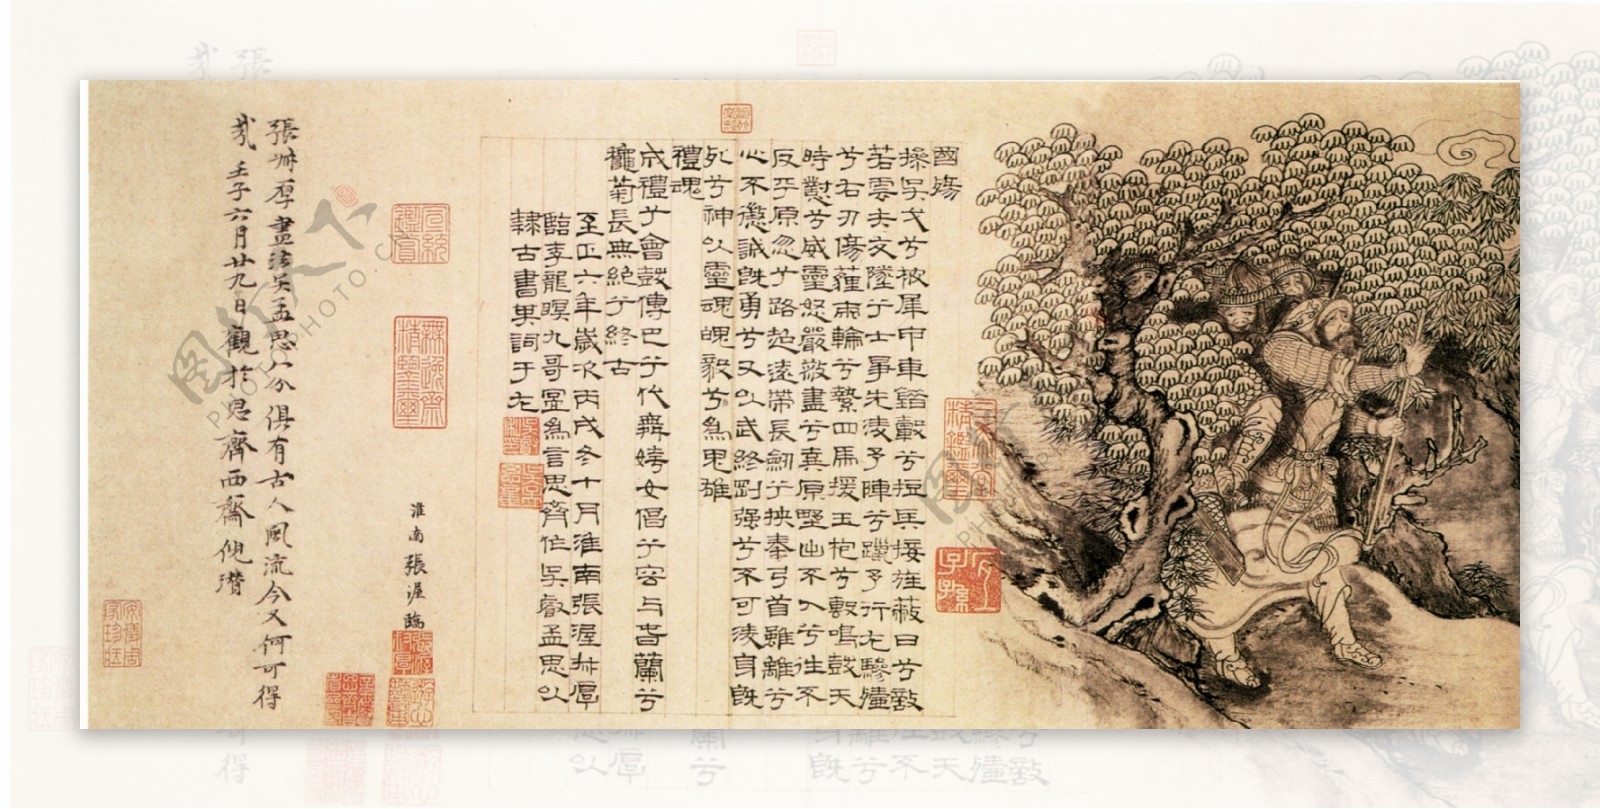 國殤
操吳戈兮被犀甲車錯轂兮短兵接旌蔽日兮敵
若雲矢交墜兮士爭先凌予陣兮躐予行左驂殪
兮右刃傷薶兩輪兮縶四馬援玉枹兮擊鳴鼓天
時懟兮威靈怒嚴殺盡兮棄原野出不入兮往不
反平原忽兮路超遠帶長劍兮挾秦弓首雖離兮
心不懲誠既勇兮又以武終剛强兮不可凌身既
死兮神以靈魂魄毅兮為鬼雄
禮魂
成禮兮會鼓傳巴兮代舞姱女倡兮容與春蘭兮
龝菊長無絕兮終古
至正六年歲次丙戌冬十月淮南張渥叔厚
臨李龍眠九哥圖為言思齊作吳睿孟思以
隸古書其詞于左
三希堂精鑑璽
宜子孫
宣統鑒賞
無逸齋精鑒璽
淮南張渥臨
張叔厚畫法吳孟思八分俱有古人風流今又何可得
哉壬子六月廿九日觀於寓齋西齋倪瓚